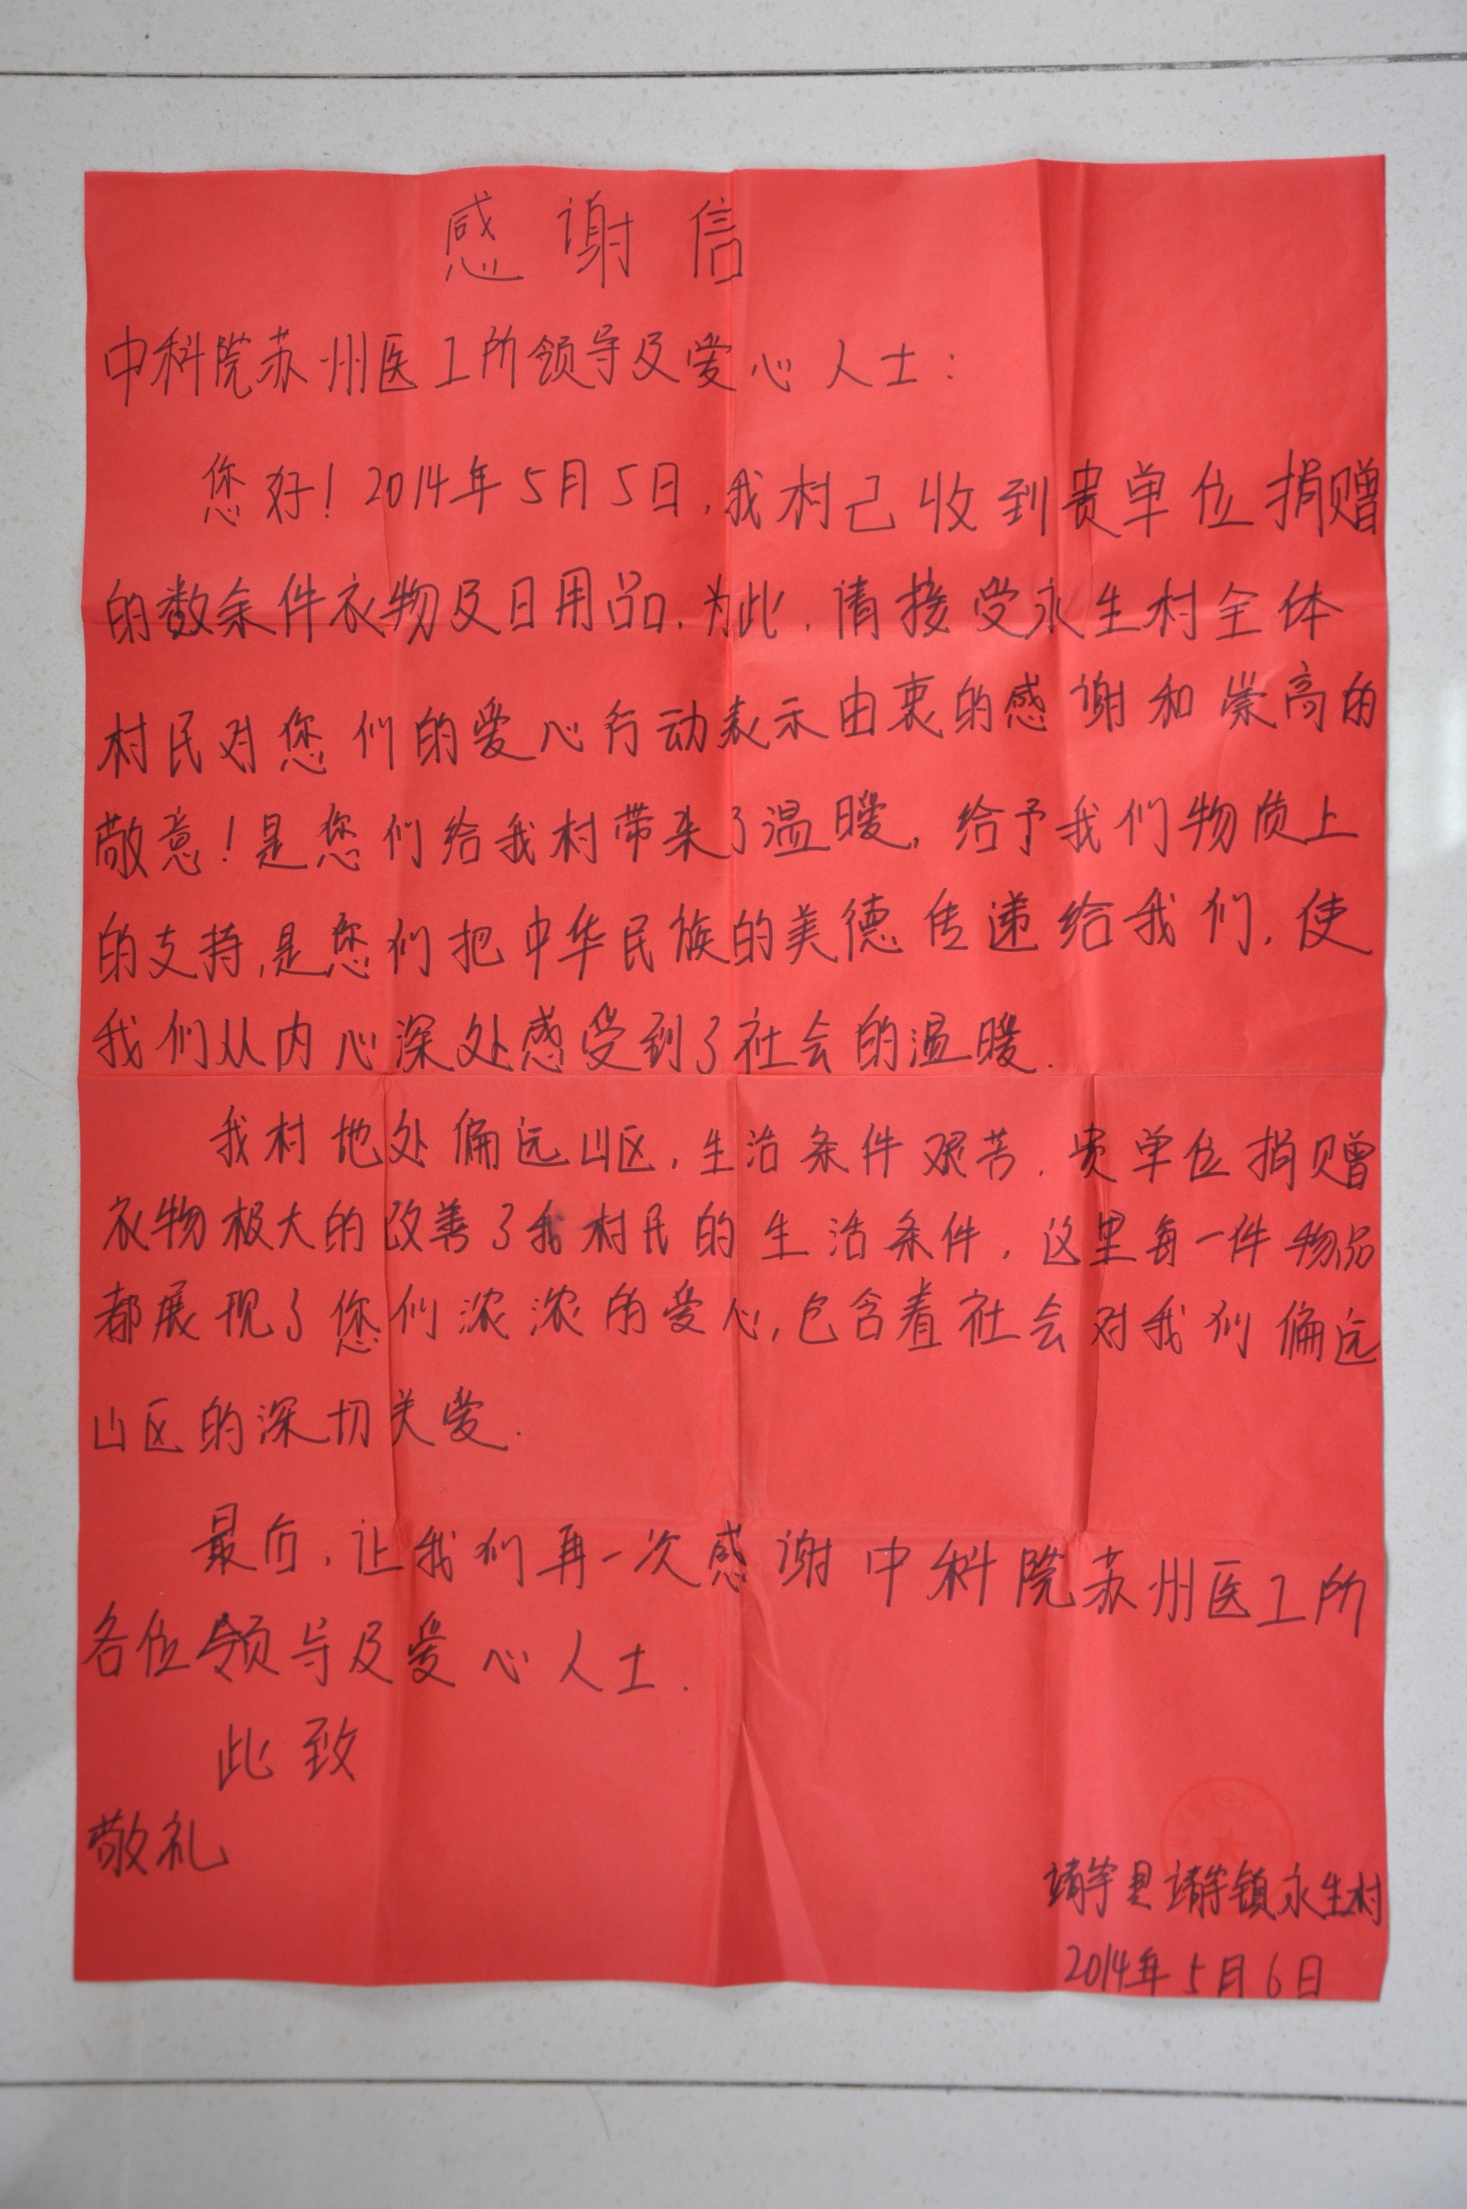 感谢信
中科院苏州医工所领导及爱心人士：
您好！2014年5月5日，我村已收到贵单位捐赠
的数余件衣物及日用品.为此.请接受永生村全体
村民对您们的爱心行动表示由衷的感谢和崇高的
敬意！是您们给我村带来了温暖，给予我们物质上
的支持,是您们把中华民族的美德传递给我们.使
我们从内心深处感受到了社会的温暖.
我村地处偏远山区,生活条件艰苦.贵单位捐赠
衣物极大的改善了我村民的生活条件.这里每一件物品
都展现了您们浓浓的爱心,包含着社会对我们偏远
山区的深切关爱.
最后.让我们再一次感谢中科院苏州医工所
各位领导及爱心人士.
此致
敬礼
靖宇县靖宇镇永生村
2014年5月6日